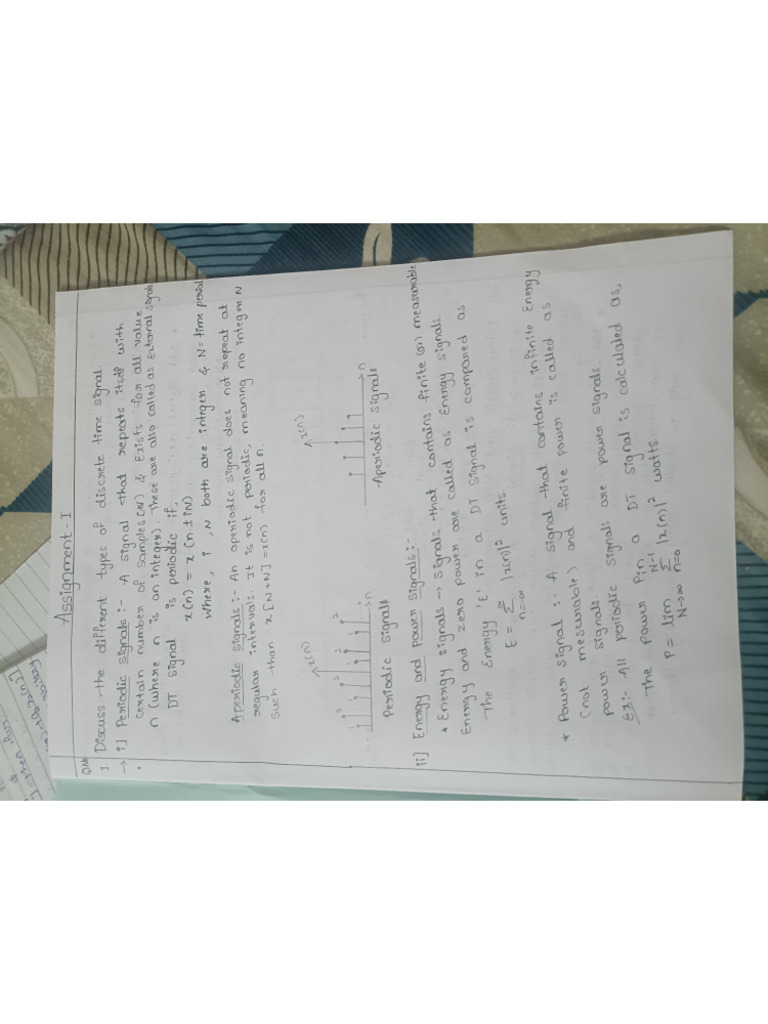 Assignment - I
Q.No
1. Discuss the different types of discrete time signal.
→ i] Periodic signals :- A signal that repeats itself with
certain number of samples (N) & Exists for all value
n (where n is an integer). These are also called as External signals
DT signal is periodic if,
x(n) = x (n ± iN)
where, i, N both are integer & N = time period
Aperiodic signals :- An aperiodic signal does not repeat at
regular intervals. It is not periodic, meaning no integer N
such than x[N+N] = x(n) for all n.
x(n)
1 2 1 2 1 2 1 2
n
Periodic signals
x(n)
n
Aperiodic signals
ii] Energy and power signals :-
* Energy signals → signals that contains finite (or) measurable
Energy and zero power are called as Energy signals
The Energy 'E' in a DT signal is compared as
E = ∞ Σ n=-∞ |x(n)|² units.
* Power signal :- A signal that contains infinite Energy
(not mesurable) and finite power is called as
power signals.
Ex:- All periodic signals are power signals.
The power P in a DT signal is calculated as,
P = lim N→∞ N-1 Σ n=0 |x(n)|² watts.